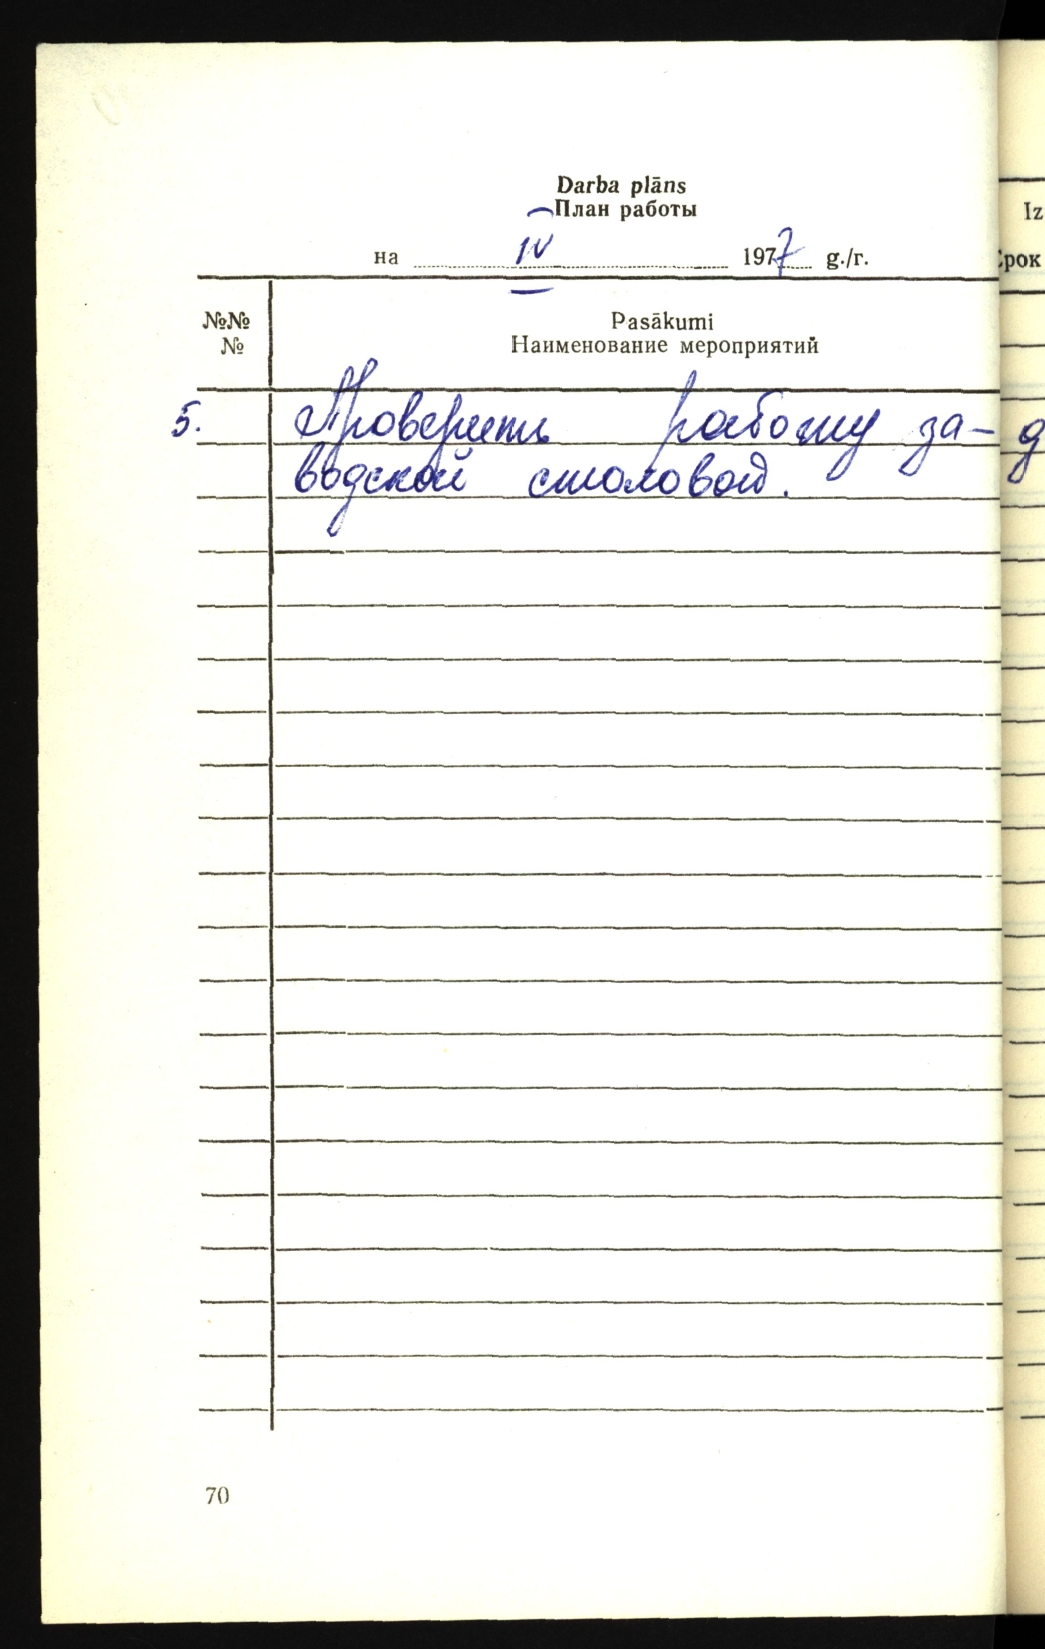 Darba plāns
План работы
на IV 1977 g./г.
№№ Pasākumi
№ Наименование мероприятий
5. Проверить работу за-
водской столовой.
70
Iz
Срок